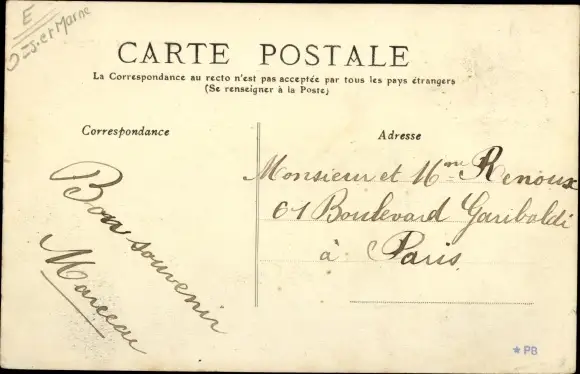 E
S. et Marne
CARTE POSTALE
La Correspondance au recto n'est pas acceptée par tous les pays étrangers
(Se renseigner à la Poste)
Correspondance
Bon souvenir
Marceau
Adresse
Monsieur et Mme Renoux
61 Boulevard Garibaldi
à Paris
* PB